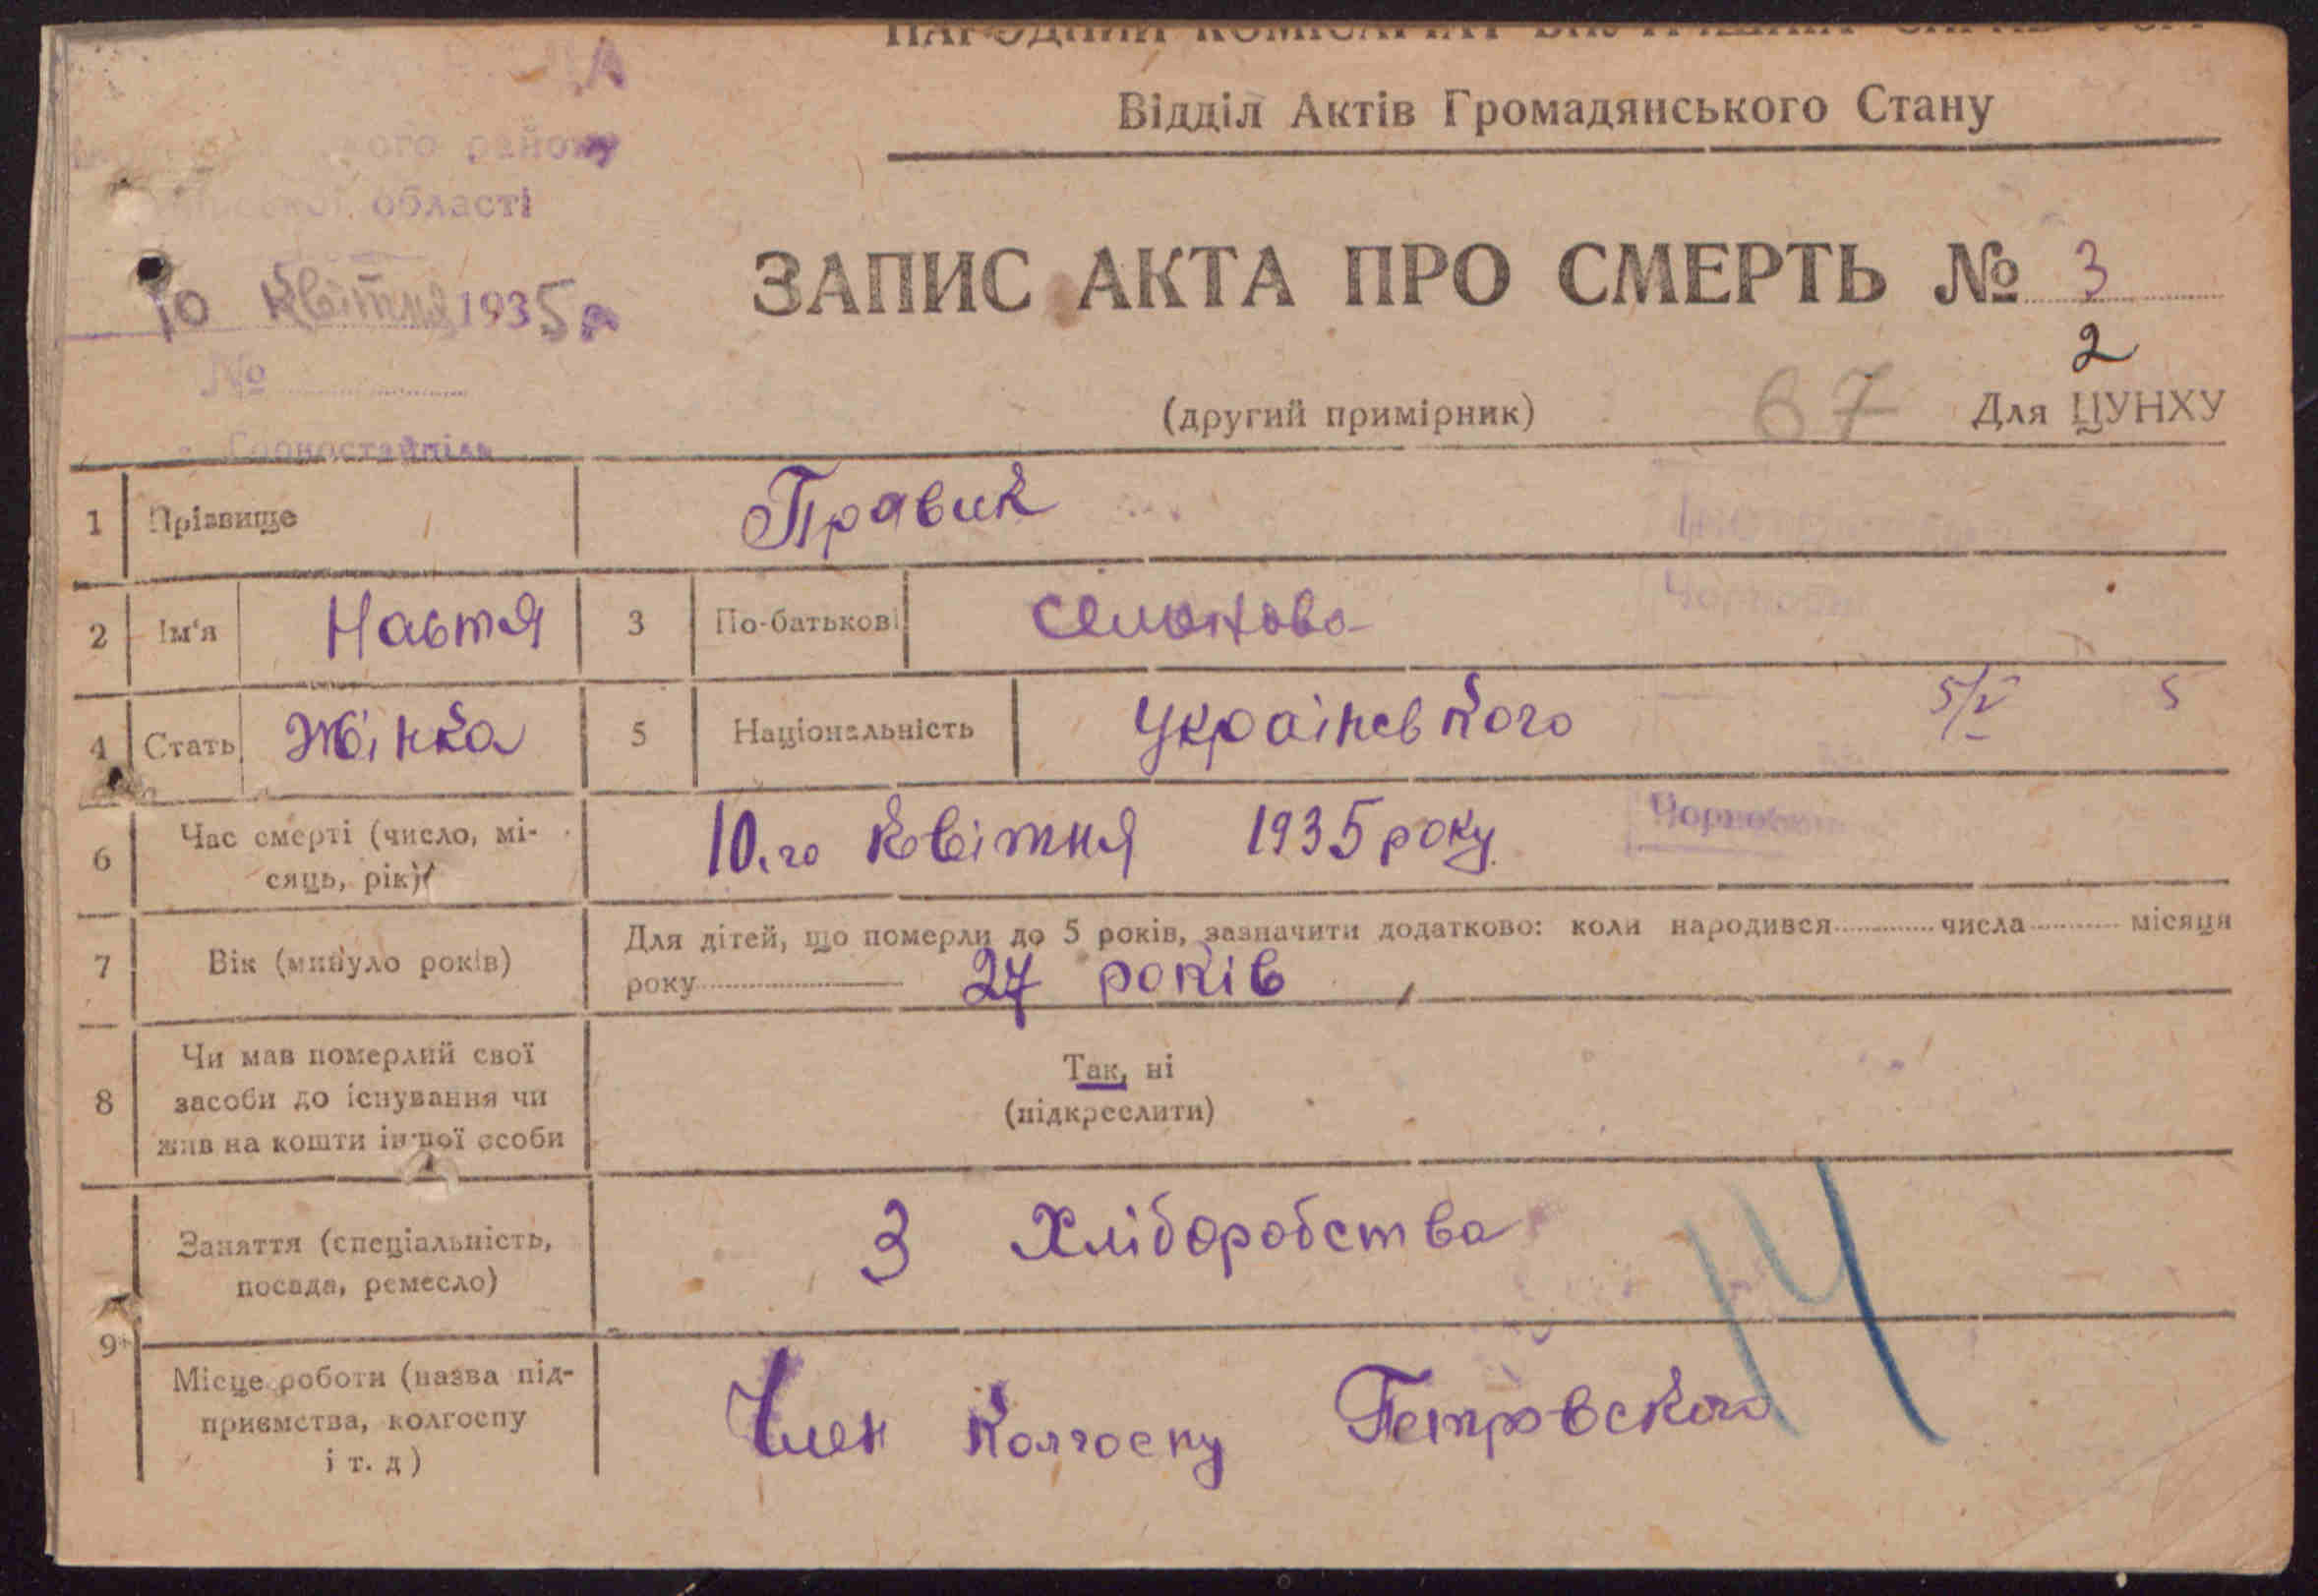 НАРОДНИЙ КОМІСАРІАТ ВНУТРІШНІХ СПРАВ УСРР
Відділ Актів Громадянського Стану
ого району
області
10 квітня 1935 р
№
Горностайпіль
ЗАПИС АКТА ПРО СМЕРТЬ № 3
2
(другий примірник)
67
Для ЦУНХУ
1 Прізвище Правик
2 Ім'я Настя 3 По-батькові Семонова
4 Стать Жінка 5 Національність Українського
5/V 5
6 Час смерті (число, мі-
сяць, рік) 10.го квітня 1935 року
Чорноб
7 Вік (минуло років) Для дітей, що померли до 5 років, зазначити додатково: коли народився числа місяця
року 27 років
8 Чи мав померлий свої
засоби до існування чи
жив на кошти іншої особи
Так, ні
(підкреслити)
9 Заняття (спеціальність,
посада, ремесло) З Хліборобства
14
Місце роботи (назва під-
приємства, колгоспу
і т. д) Член колгоспу Петровского